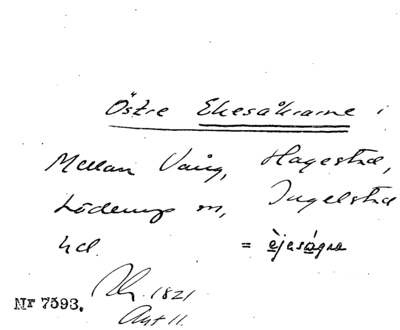 Östre Ekesåkrarne i
Mellan Vång, Hagestad,
Löderup sn, Ingelstad
hd. = èjeságra
Nr 7593. 1821
Akt 11.